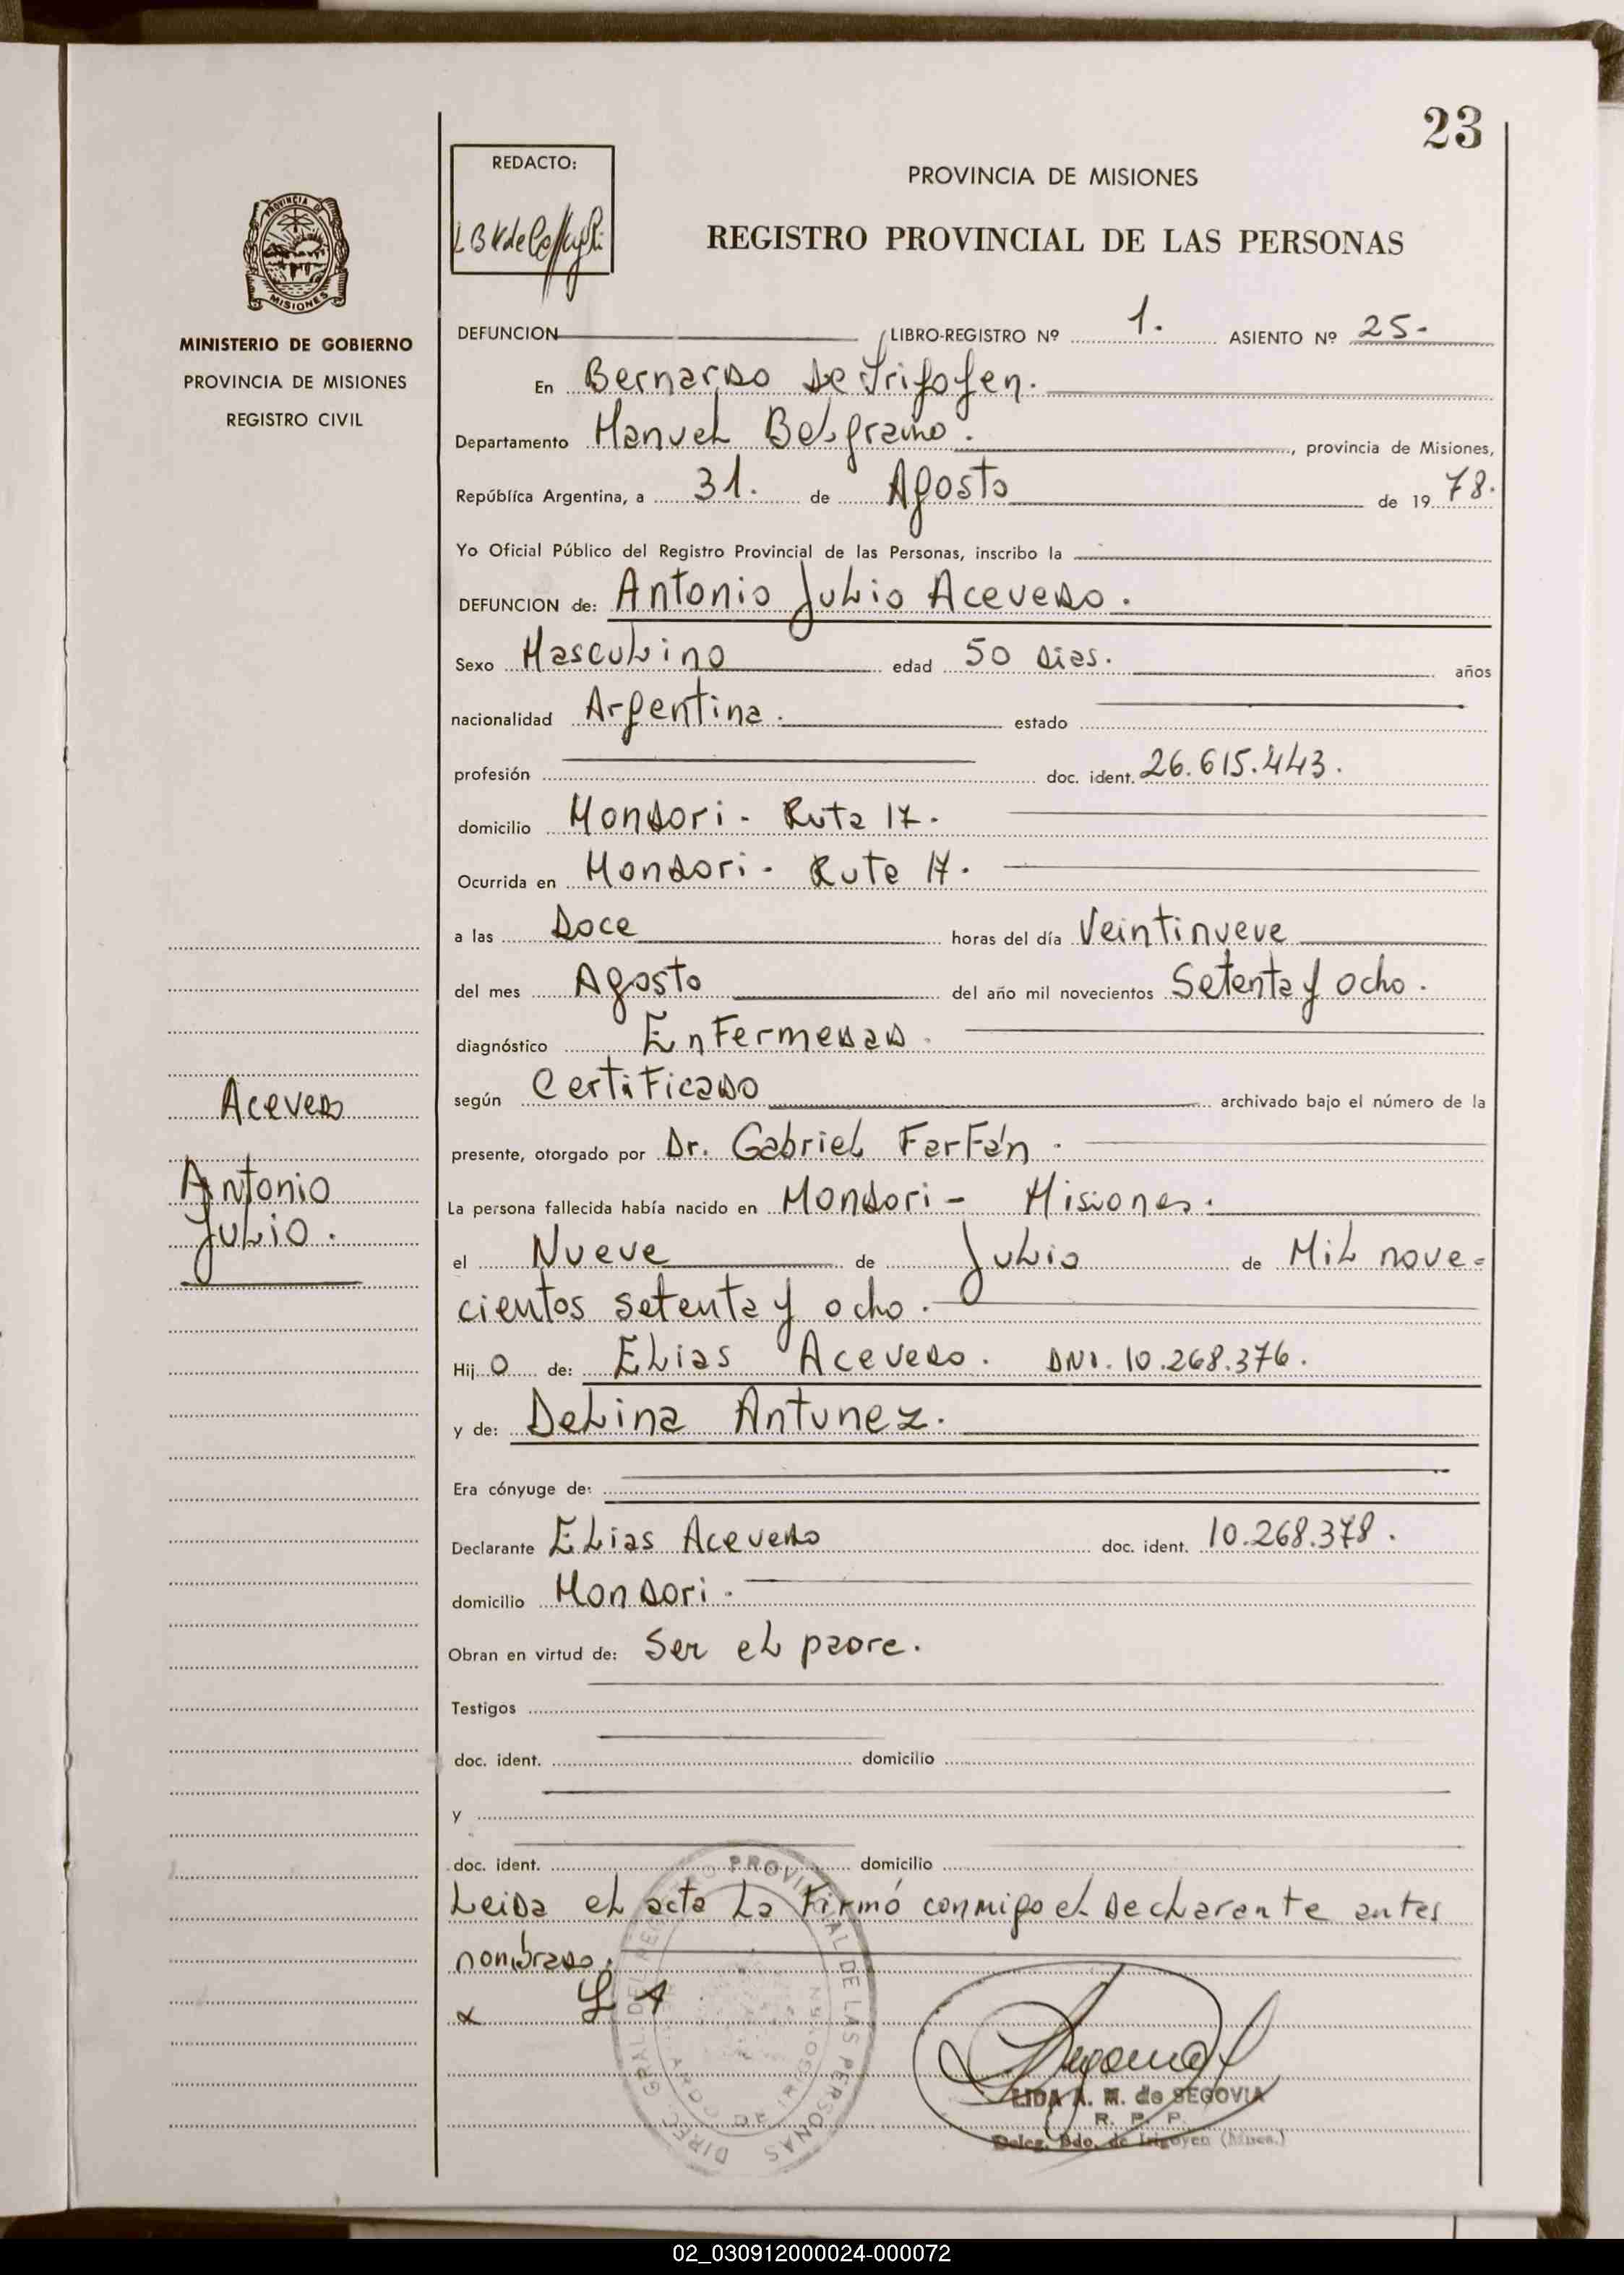 23
REDACTO:
PROVINCIA DE MISIONES
REGISTRO PROVINCIAL DE LAS PERSONAS
PROVINCIA DE
MISIONES
MINISTERIO DE GOBIERNO
PROVINCIA DE MISIONES
REGISTRO CIVIL
DEFUNCION LIBRO-REGISTRO Nº 1. ASIENTO Nº 25-
En Bernardo de Irigoyen.
Departamento Manuel Belgrano. , provincia de Misiones,
República Argentina, a 31. de Agosto de 19 78.
Yo Oficial Público del Registro Provincial de las Personas, inscribo la
DEFUNCION de: Antonio Julio Acevedo.
Sexo Masculino edad 50 dias. años
nacionalidad Argentina. estado
profesión doc. ident. 26.615.443.
domicilio Mondori - Ruta 17.
Ocurrida en Mondori - Ruta 17.
a las Doce horas del día Veintinueve
del mes Agosto del año mil novecientos Setenta y ocho.
diagnóstico Enfermedad.
según Certificado archivado bajo el número de la
presente, otorgado por Dr. Gabriel Farfán.
La persona fallecida había nacido en Mondori - Misiones.
el Nueve de Julio de Mil nove=
cientos setenta y ocho.
Hijo de: Elias Acevedo. DNI. 10.268.376.
y de: Delina Antunez.
Era cónyuge de:
Declarante Elias Acevedo doc. ident. 10.268.378.
domicilio Mondori.
Obran en virtud de: Ser el padre.
Testigos
doc. ident. domicilio
y
doc. ident. domicilio
Leida el acta la firmó conmigo el declarante antes
nombrado.
x
Acevedo
Antonio
Julio.
DIREC. GRAL. DEL REGISTRO PROVINCIAL DE LAS PERSONAS
LIDA A. M. de SEGOVIA
R. P. P.
Deleg. Bdo. de Irigoyen (Mnes.)
02_030912000024-000072